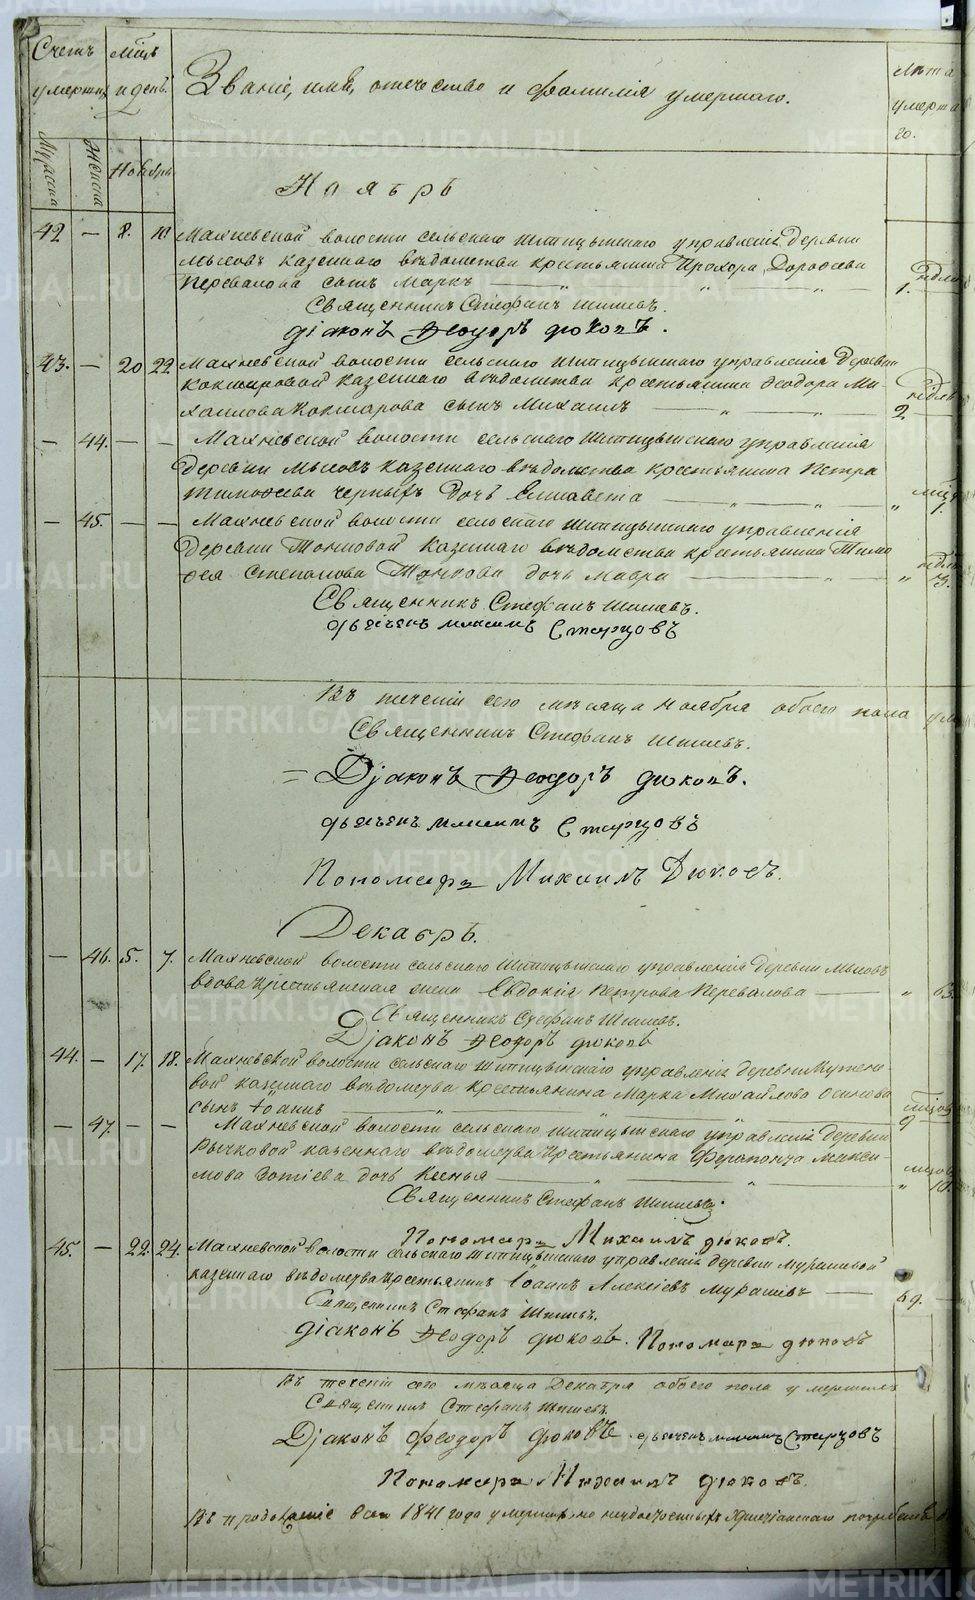 Счетъ умершихъ
Мѣсяцъ и день.
Званіе, имя, отечество и фамилія умершаго.
Лѣта умершаго.
Мужеска
Женска
Ноябрь
Ноябрь
42 — 8. 10. Махневской волости сельскаго Шипицынскаго управленія деревни
Мысовъ казеннаго вѣдомства крестьянина Прохора Дорофеева
Перевалова сынъ Маркъ — „ — „ — „ — 1. нѣдль
Священникъ Стефанъ Шишевъ.
Діаконъ Ѳеодоръ Дюковъ.
43. — 20 22 Махневской волости сельскаго Шипицынскаго управленія деревни
Кокшаровой казеннаго вѣдомства крестьянина Ѳеодора Ми-
хаилова Кокшарова сынъ Михаилъ — „ — „ — 2. нѣдль
— 44. — — Махневской волости сельскаго Шипицынскаго управленія
деревни Мысовъ казеннаго вѣдомства крестьянина Петра
Тимофеева Черныхъ дочь Елисавета — „ — „ — „ 1.
— 45. — — Махневской волости сельскаго Шипицынскаго управленія
деревни Толмовой казеннаго вѣдомства крестьянина Тимо
фея Степанова дочь Мавра — „ — „ 3. нѣдль
Священникъ Стефанъ Шишевъ.
Дьячекъ Максимъ Старцовъ
Въ теченіи сего мѣсяца Ноября обоего пола
Священникъ Стефанъ Шишевъ.
Діаконъ Ѳеодоръ Дюковъ.
Дьячекъ Максимъ Старцовъ
Пономарь Михаилъ Дюковъ.
Декабрь.
— 46. 5. 7. Махневской волости сельскаго Шипицынскаго управленія деревни Мысовъ
вдова крестьянская жена Евдокія Петрова Перевалова — „ 63.
Священникъ Стефанъ Шишевъ.
Діаконъ Ѳеодоръ Дюковъ
44. — 17. 18. Махневской волости сельскаго Шипицынскаго управленія деревни
казеннаго вѣдомства крестьянина Марка Михайлова Осипова
сынъ Іоаннъ — „ — „ — 9
— 47. — — Махневской волости сельскаго Шипицынскаго управленія деревни
Рычковой казеннаго вѣдомства крестьянина Ферапонта Макси-
мова дочь Ксенья — „ — „ — „ 10.
Священникъ Стефанъ Шишевъ.
Пономарь Михаилъ Дюковъ.
45. — 22. 24. Махневской волости сельскаго Шипицынскаго управленія деревни Мурашевой
казеннаго вѣдомства крестьянинъ Іоаннъ Алексіевъ Мурашевъ — 69.
Священникъ Стефанъ Шишевъ.
Діаконъ Ѳеодоръ Дюковъ. Пономарь Дюковъ
Въ теченіи сего мѣсяца Декабря обоего пола умершихъ
Священникъ Стефанъ Шишевъ.
Діаконъ Феодоръ Дюковъ. Дьячекъ Максимъ Старцовъ
Пономарь Михаилъ Дюковъ.
Въ продолженіе всего 1841 года умершихъ но неудостоенныхъ Христіанскаго погребенія
METRIKI.GASO-URAL.RU